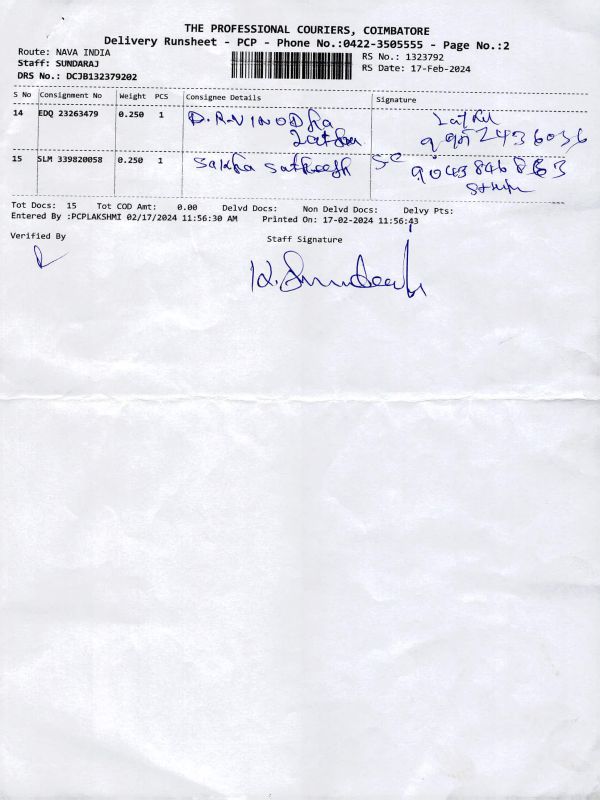 THE PROFESSIONAL COURIERS, COIMBATORE
Delivery Runsheet - PCP - Phone No.:0422-3505555 - Page No.:2
Route: NAVA INDIA
RS No.: 1323792
Staff: SUNDARAJ
RS Date: 17-Feb-2024
DRS No.: DCJB132379202
S No Consignment No Weight PCS Consignee Details Signature
14 EDQ 23263479 0.250 1 D.R.VINODha
Latha
15 SLM 339820058 0.250 1 Sakha Satheesh
Tot Docs: 15 Tot COD Amt: 0.00 Delvd Docs: Non Delvd Docs: Delvy Pts:
Entered By :PCPLAKSHMI 02/17/2024 11:56:30 AM Printed On: 17-02-2024 11:56:43
Verified By
Staff Signature